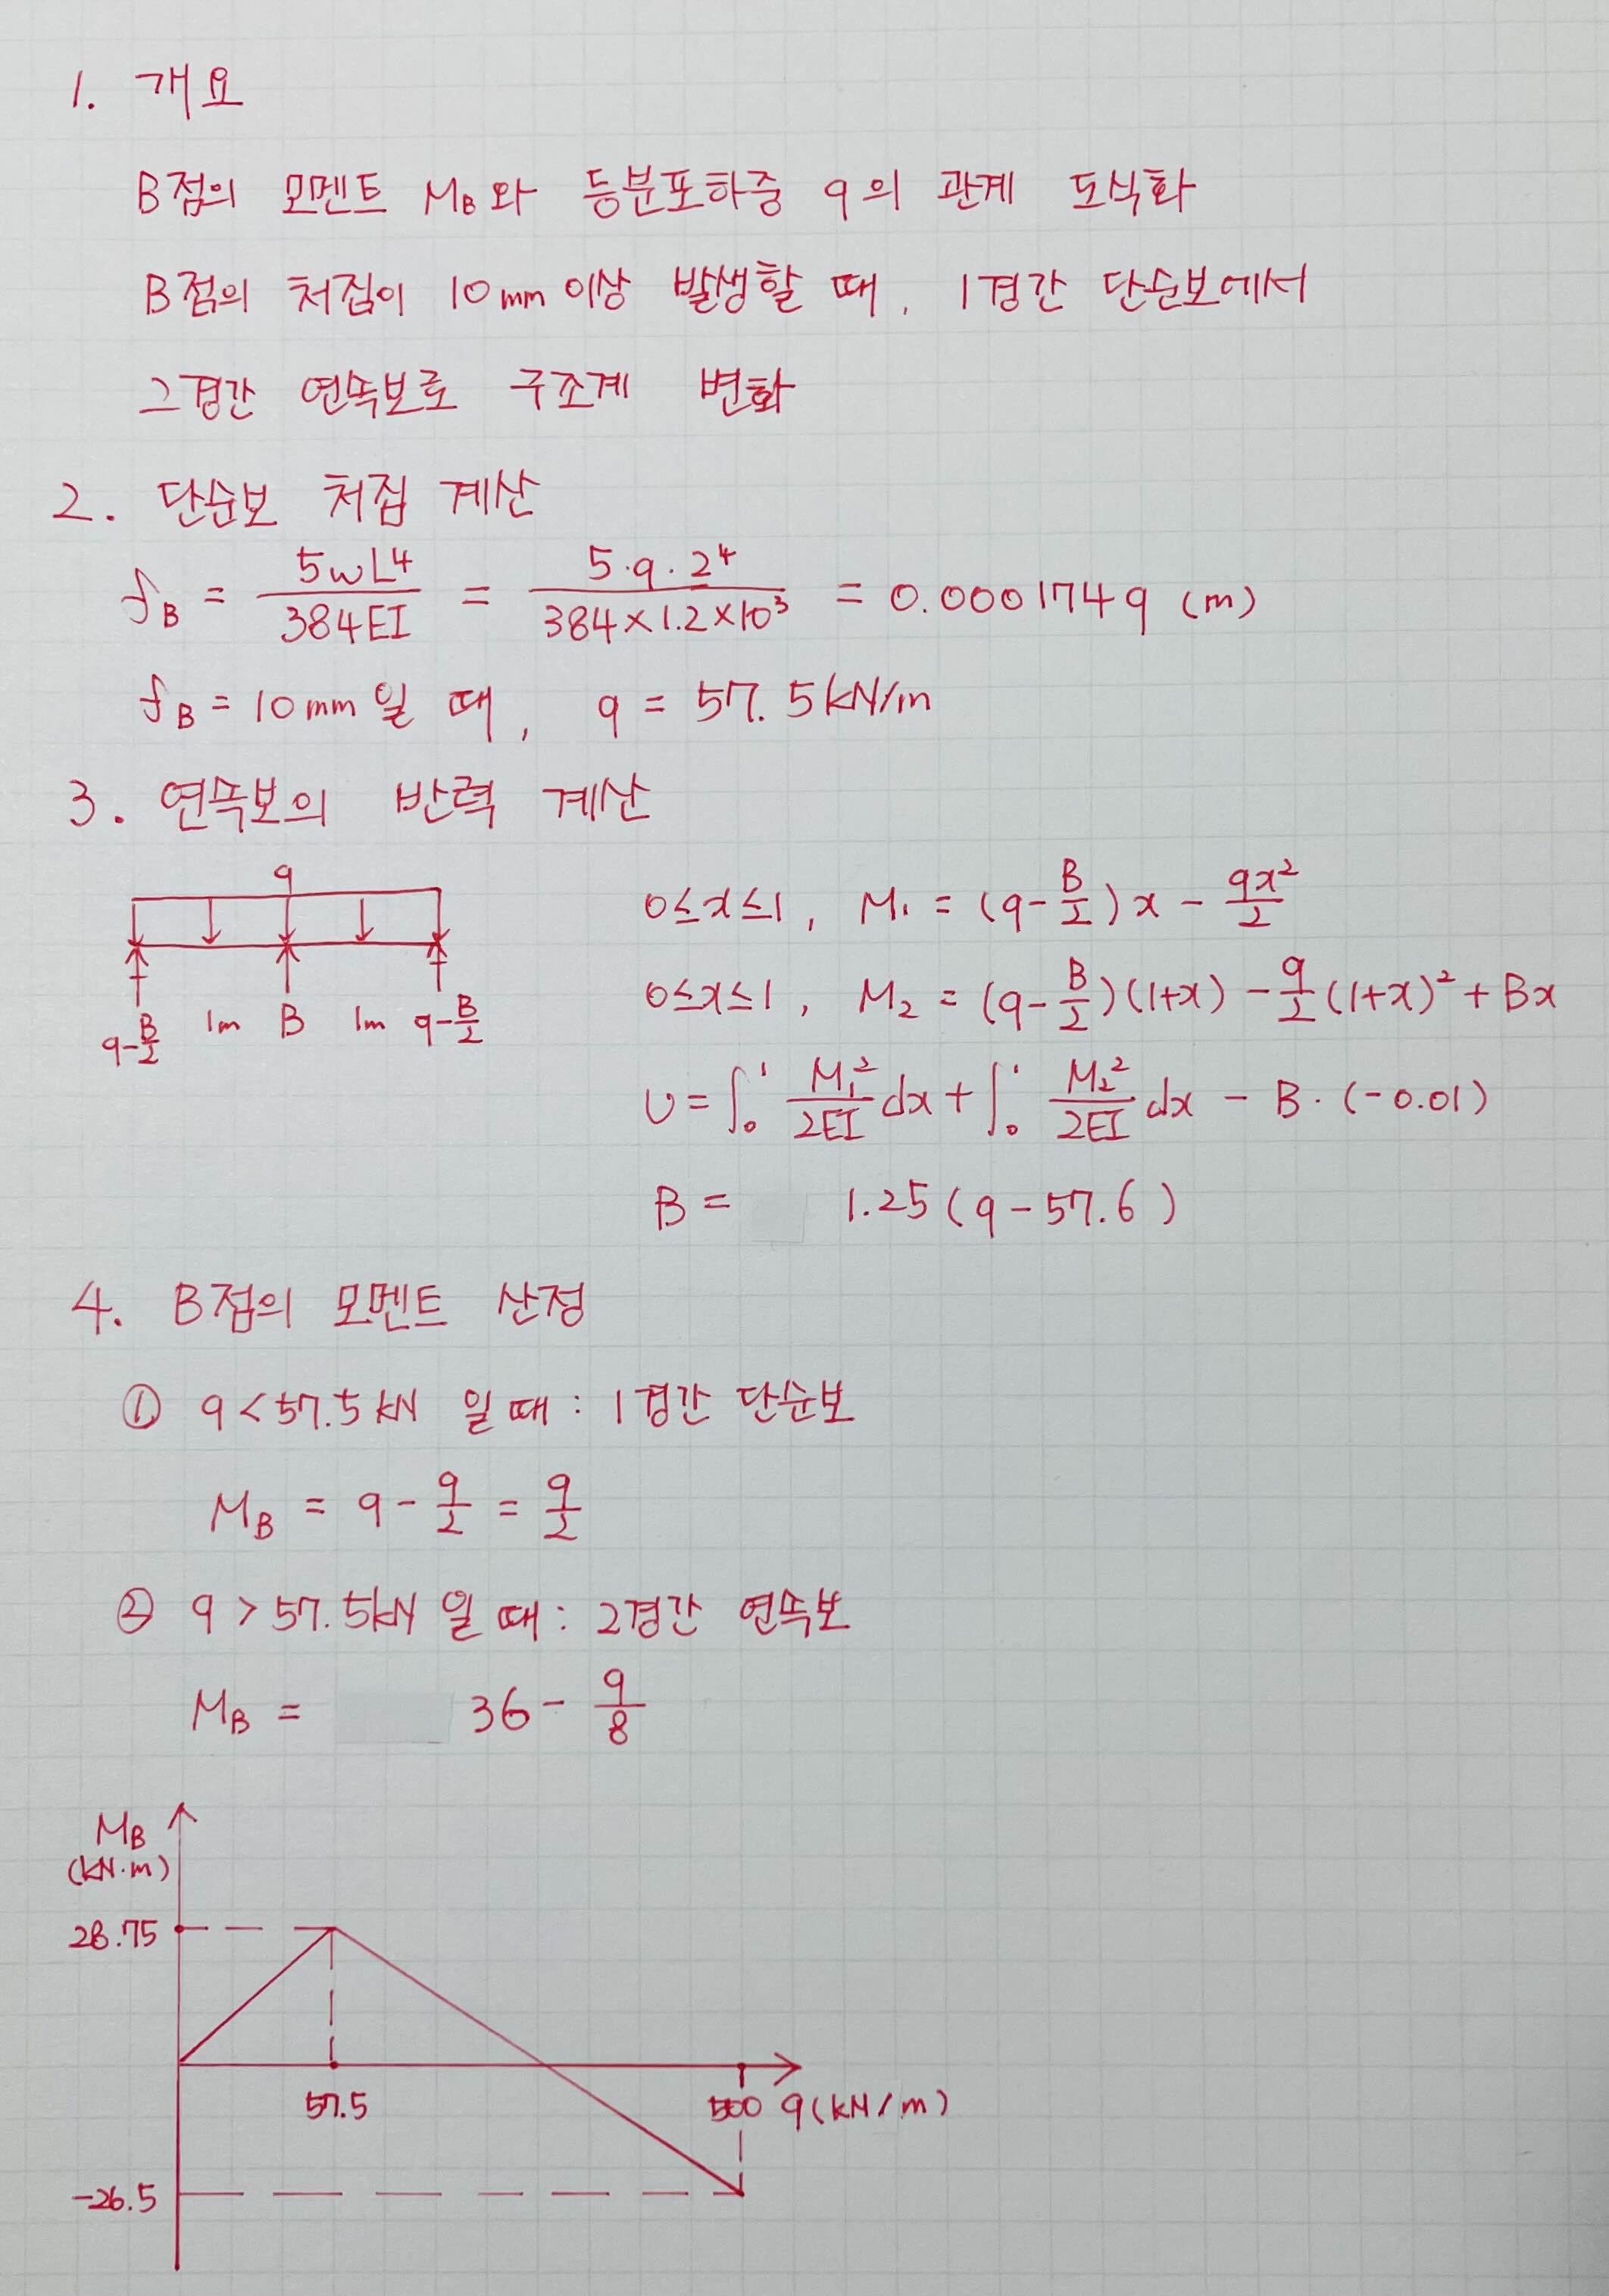 1. 개요
B점의 모멘트 M_B와 등분포하중 q의 관계 도식화
B점의 처짐이 10mm 이상 발생할 때, 1경간 단순보에서
2경간 연속보로 구조계 변화
2. 단순보 처짐 계산
f_B = 5wL⁴/384EI = 5·q·2⁴/384×1.2×10³ = 0.0001749 (m)
f_B = 10mm 일 때, q = 57.5kN/m
3. 연속보의 반력 계산
q
q-B/2 1m B 1m q-B/2
0≤x≤1, M₁ = (q-B/2)x - qx²/2
0≤x≤1, M₂ = (q-B/2)(1+x) - q/2(1+x)² + Bx
U = ∫₀¹ M₁²/2EI dx + ∫₀¹ M₂²/2EI dx - B·(-0.01)
B = 1.25(q-57.6)
4. B점의 모멘트 산정
① q<57.5kN 일 때: 1경간 단순보
M_B = q - q/2 = q/2
② q>57.5kN 일 때: 2경간 연속보
M_B = 36 - q/8
M_B
(kN·m)
28.75
57.5 500 q(kN/m)
-26.5